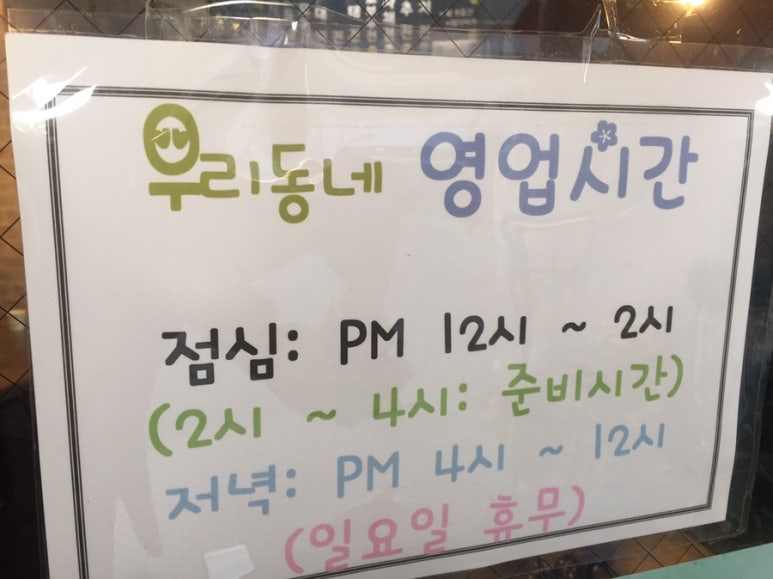 우리동네 영업시간
점심: PM 12시 ~ 2시
(2시 ~ 4시: 준비시간)
저녁: PM 4시 ~ 12시
(일요일 휴무)